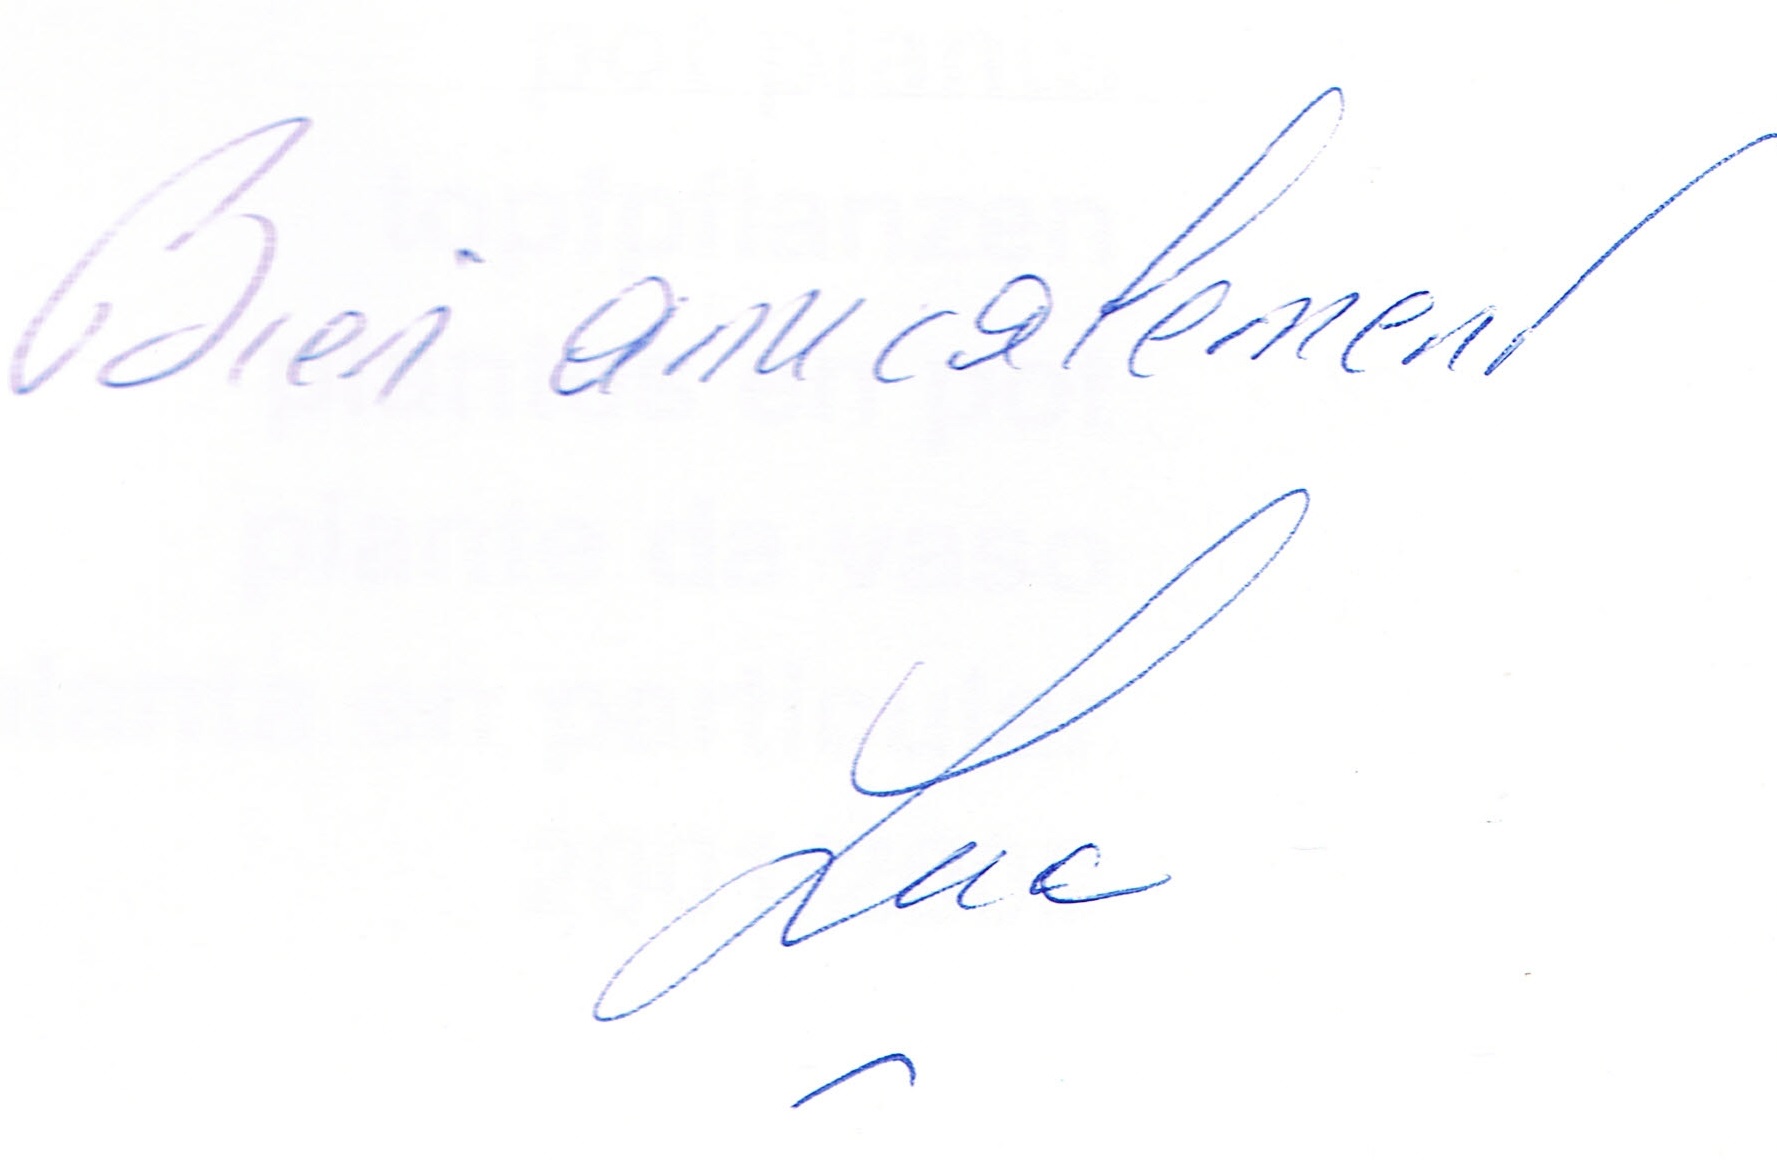 Bien amicalement
Luc